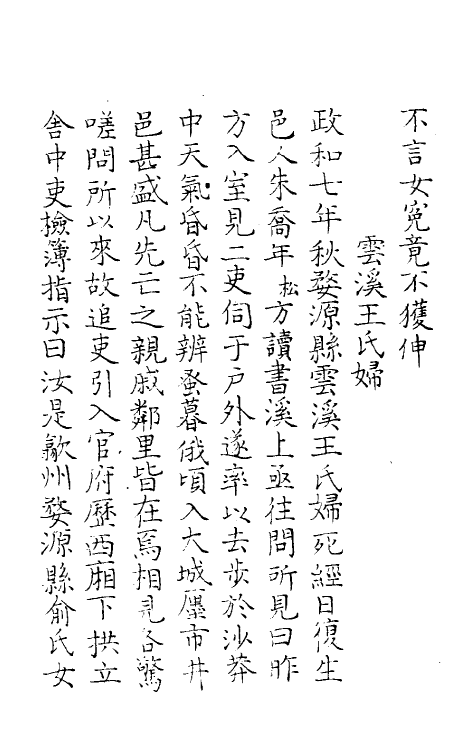 不言女冤竟不獲伸
雲溪王氏婦
政和七年秋婺源縣雲溪王氏婦死經日復生
邑人朱喬年松方讀書溪上亟往問所見曰昨
方入室見二吏伺于户外遂率以去步於沙莽
中天氣昏昏不能辨蚤暮俄頃入大城廛市井
邑甚盛凡先亡之親戚鄰里皆在焉相見各驚
嗟問所以來故追吏引入官府歷西廂下拱立
舎中吏撿簿指示曰汝是歙州婺源縣俞氏女